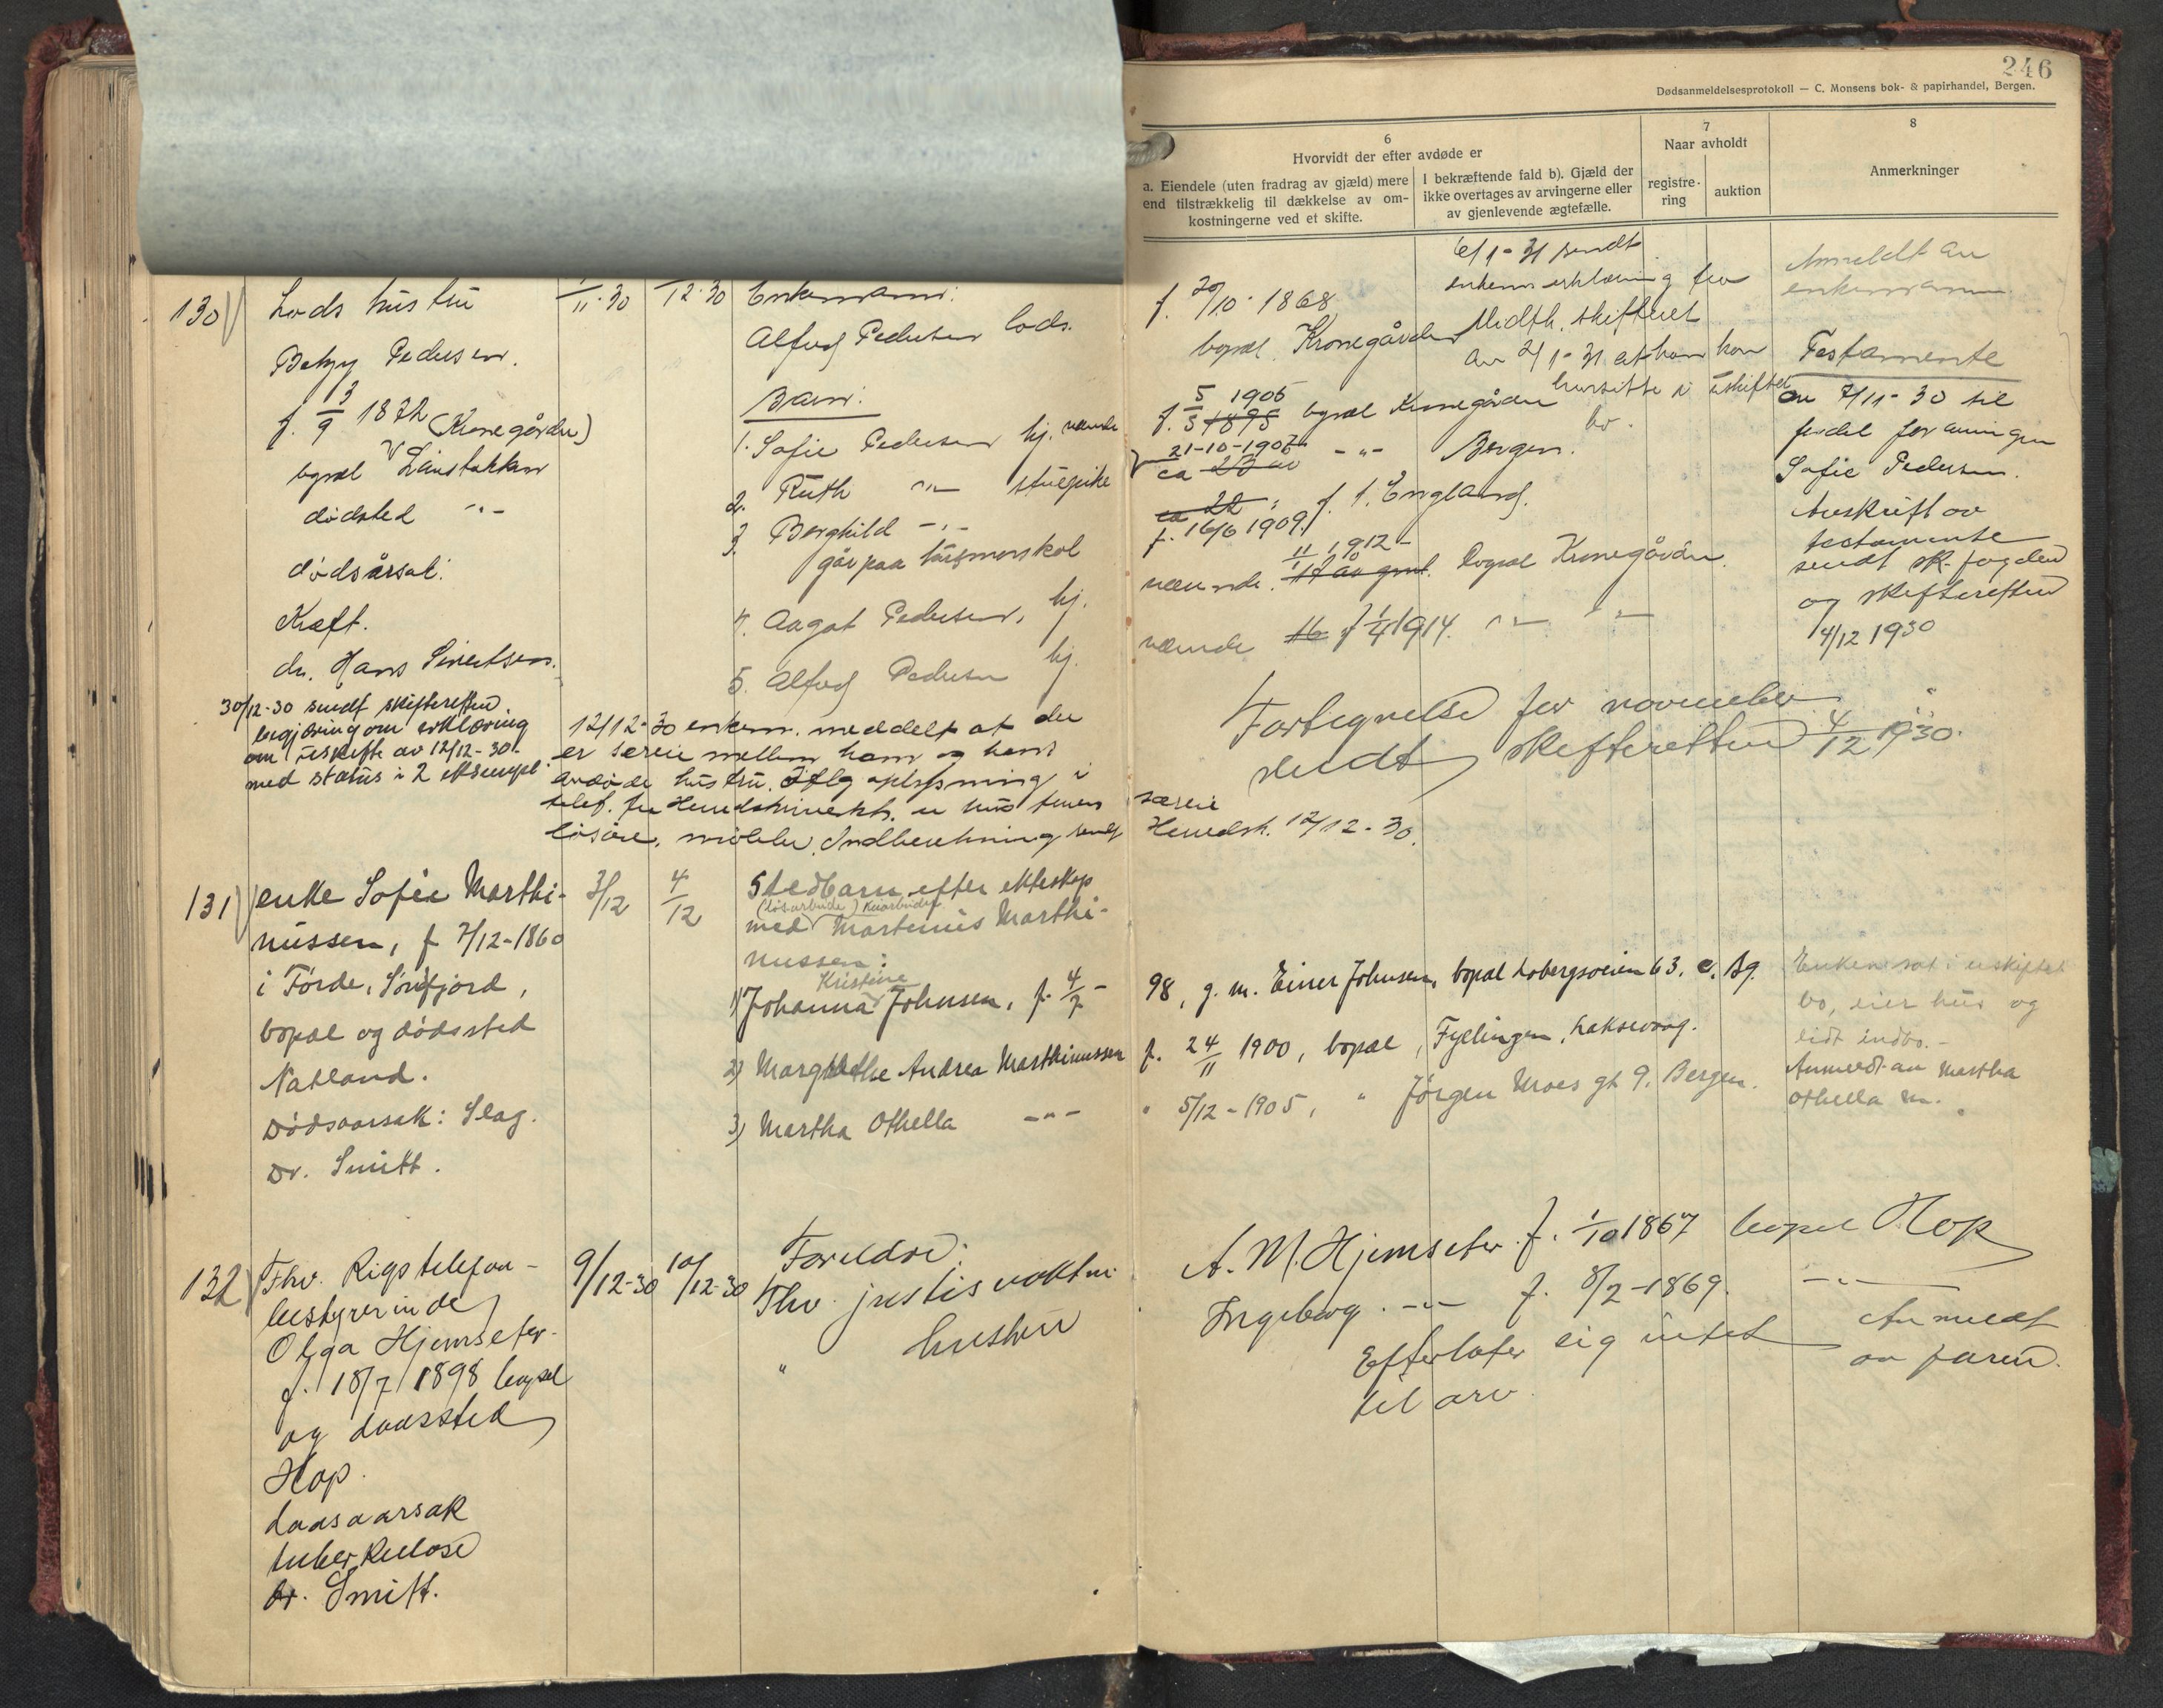 246
Dødsanmeldelsesprotokoll — C. Monsens bok- & papirhandel, Bergen.
6
Hvorvidt der efter avdøde er
a. Eiendele (uten fradrag av gjæld) mere
end tilstrækkelig til dækkelse av om-
kostningerne ved et skifte.
I bekræftende fald b). Gjæld der
ikke overtages av arvingerne eller
av gjenlevende ægtefælle.
7
Naar avholdt
registre-
ring
auktion
8
Anmerkninger
130
Lods hustru
Betzy Pedersen.
f. 13/9 1872 (Kronegården)
bopæl
dødsted -"-
dødsårsak:
Kræft.
dr. Hans Sivertsen.
30/12-30 sendt skifteretten
begjæring om erklæring
om uskifte av 12/12-30
med status i 2 eksempl.
11-30
12-30
Enkemann:
Alfred Pedersen lods.
Barn:
1. Sofie Pedersen hj. værende
2. Ruth -"- stuepike
3. Borghild -"-
går paa husmorskol
4. Aagot Pedersen, hj.
5. Alfred Pedersen hj.
12/12-30 enkem. meddelt at der
er særeie mellem ham og hans
avdøde hustru. Iflg oplysning i
telef. fra Herredskriverkt. er
løsøre, møbler. Indberetning sendt
f. 20/10-1868
bopæl. Kronegården
6/1-31 sendt
enkem. erklæring fra
Midth. skifteret
av 2/1-31 at han kan
hensitte i uskiftet
bo.
f. 5/3 1906 1895 bopæl Kronegården
21-10-1907 ca 23 år -"- Bergen.
ca 22 " f. i. England.
f. 16/6 1909.
11/10 1912-
værende. 17 år gml. Bopæl Kronegården.
værende 16 f 1/4 1914. -"- -"-
Fortegnelse for november
sendt skifteretten 4/12 1930.
særeie
Herredsk. 12/12-30.
Anmeldt av
enkemannen
Testamente
av 7/11-30 til
fordel for arvingen
Sofie Pedersen.
Avskrift av
testamente
sendt sk. fogden
og skifteretten
4/12 1930
131
enke Sofie Marthi-
nussen, f 7/12-1860
i Førde, Sunnfjord,
bopæl og dødssted
Natland.
Dødsaarsak: Slag.
Dr. Smitt.
3/12
4/12
Stedbarn efter ekteskap
(løsarbeider)
med Martinus Marthi-
nussen:
Kristine
1) Johanna Johnsen, f. 4/7 -
98, g. m. Einer Johnsen, bopæl Lobergsveien 63. e. Bg.
2) Margrethe Andrea Marthinussen
f. 24/11 1900, bopæl, Fyllingen, Laksevaag.
3) Martha Othella -"-
" 5/12-1905, " Jørgen Moes gt 9. Bergen.
Enken sat i uskiftet
bo, eier hus og
lidt indbo.-
Anmeldt av Martha
Othella M.
132
Fhv. Rigstelefon-
bestyrerinde
Olga Hjemseter.
f. 18/7 1898 bopæl
og dødssted
Hop.
dødsaarsak
tuberkulose
dr. Smitt.
9/12-30
10/12-30
Foreldre:
Fhv. justisvaktm.
" hustru
A. M. Hjemseter. f. 1/10 1867 bopæl Hop
Ingeborg. -"- f. 8/2-1869. -"-
Efterlater sig intet
til arv.
Anmeldt
av faren.